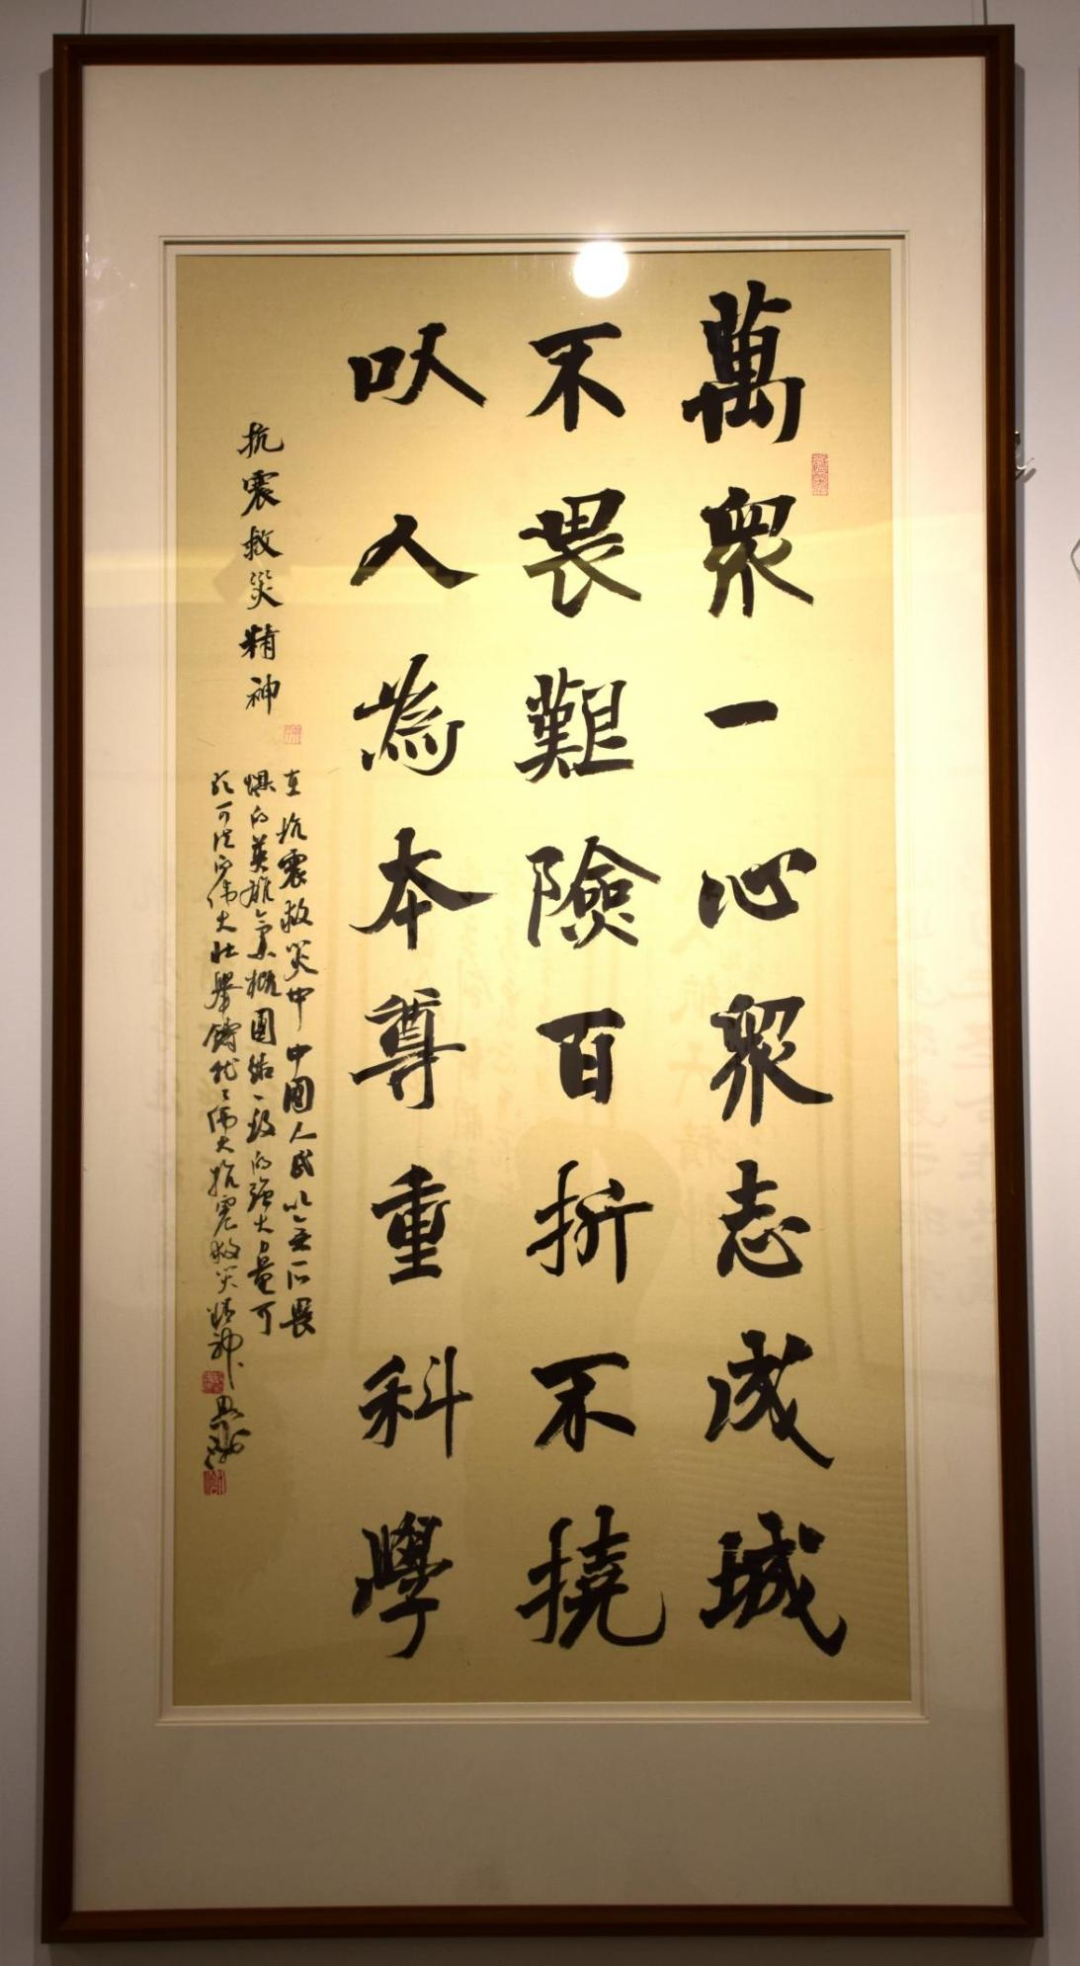 萬眾一心眾志成城
不畏艱險百折不撓
以人為本尊重科學
抗震救災精神
在抗震救災中中國人民以無所畏
懼的英雄氣概團結一致的强大力量可
歌可泣的偉大壯舉鑄就了偉大抗震救災精神